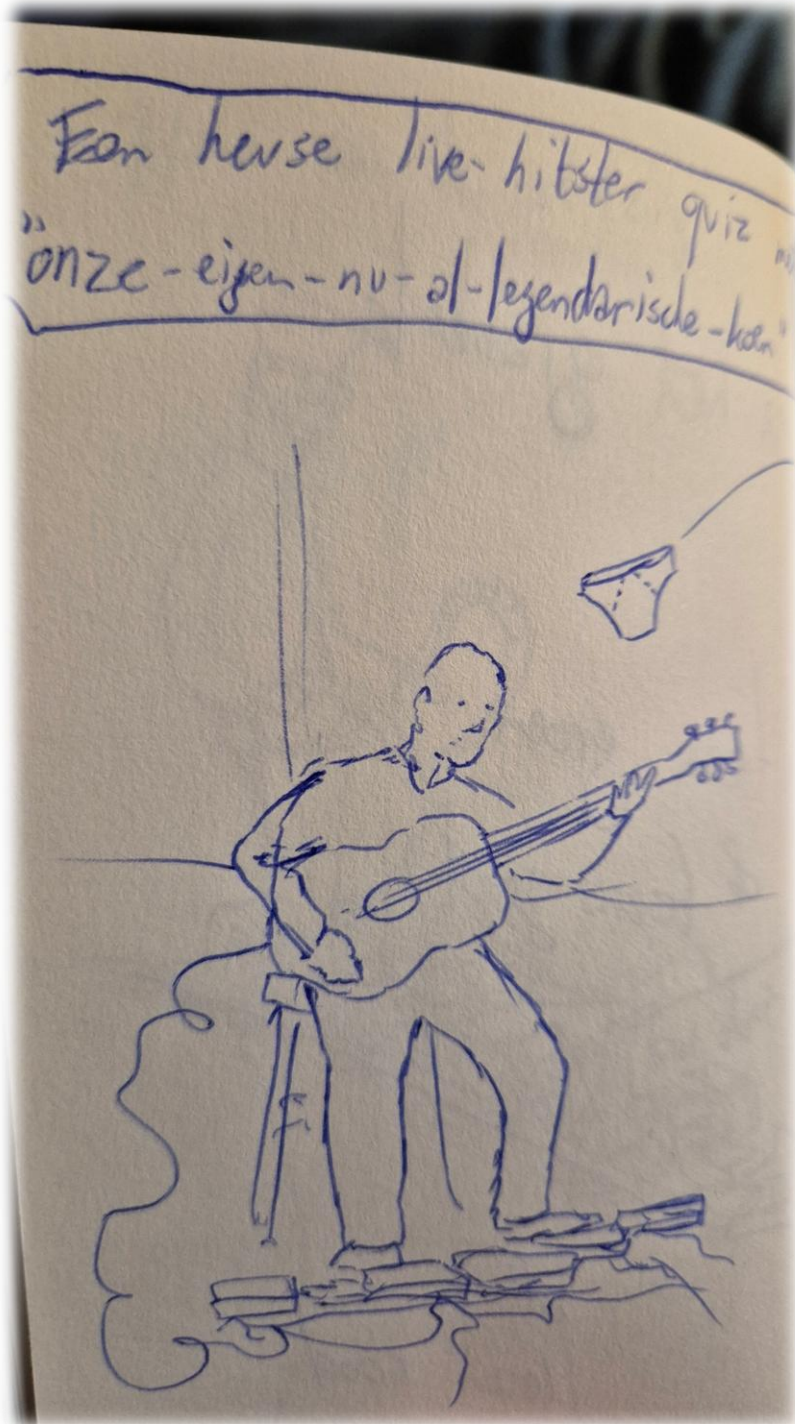 Een heuse live-hitster quiz
"onze-eigen-nu-al-legendarische-koen"